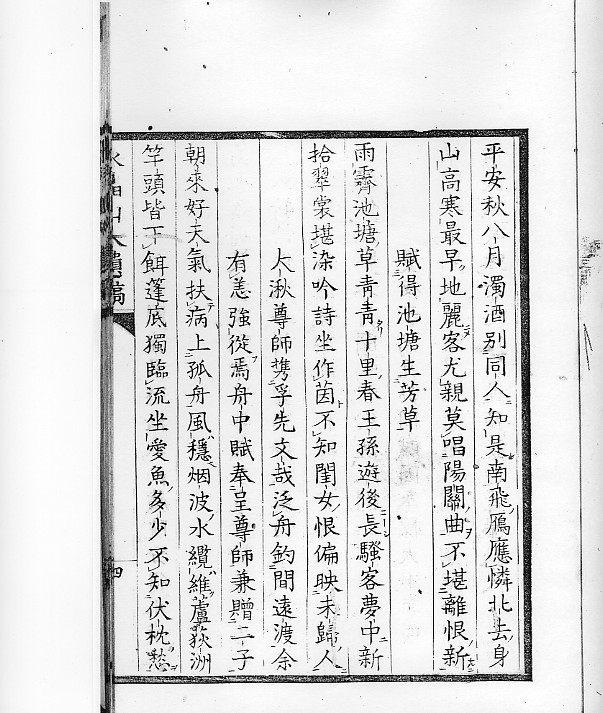 平安秋八月濁酒別同人知是南飛鴈應憐北去身
山高寒最早地麗客尤親莫唱陽關曲不堪離恨新
賦得池塘生芳草
雨霽池塘草青青十里春王孫遊後長騷客夢中新
拾翠裳堪染吟詩坐作茵不知閨女恨偏映未歸人
大湫尊師携孚先文哉泛舟釣間遠渡余
有恙強從焉舟中賦奉呈尊師兼贈二子
朝來好天氣扶病上孤舟風穩烟波水纜維蘆荻洲
竿頭皆下餌蓬底獨臨流坐愛魚多少不知伏枕愁
山人遺稿
四